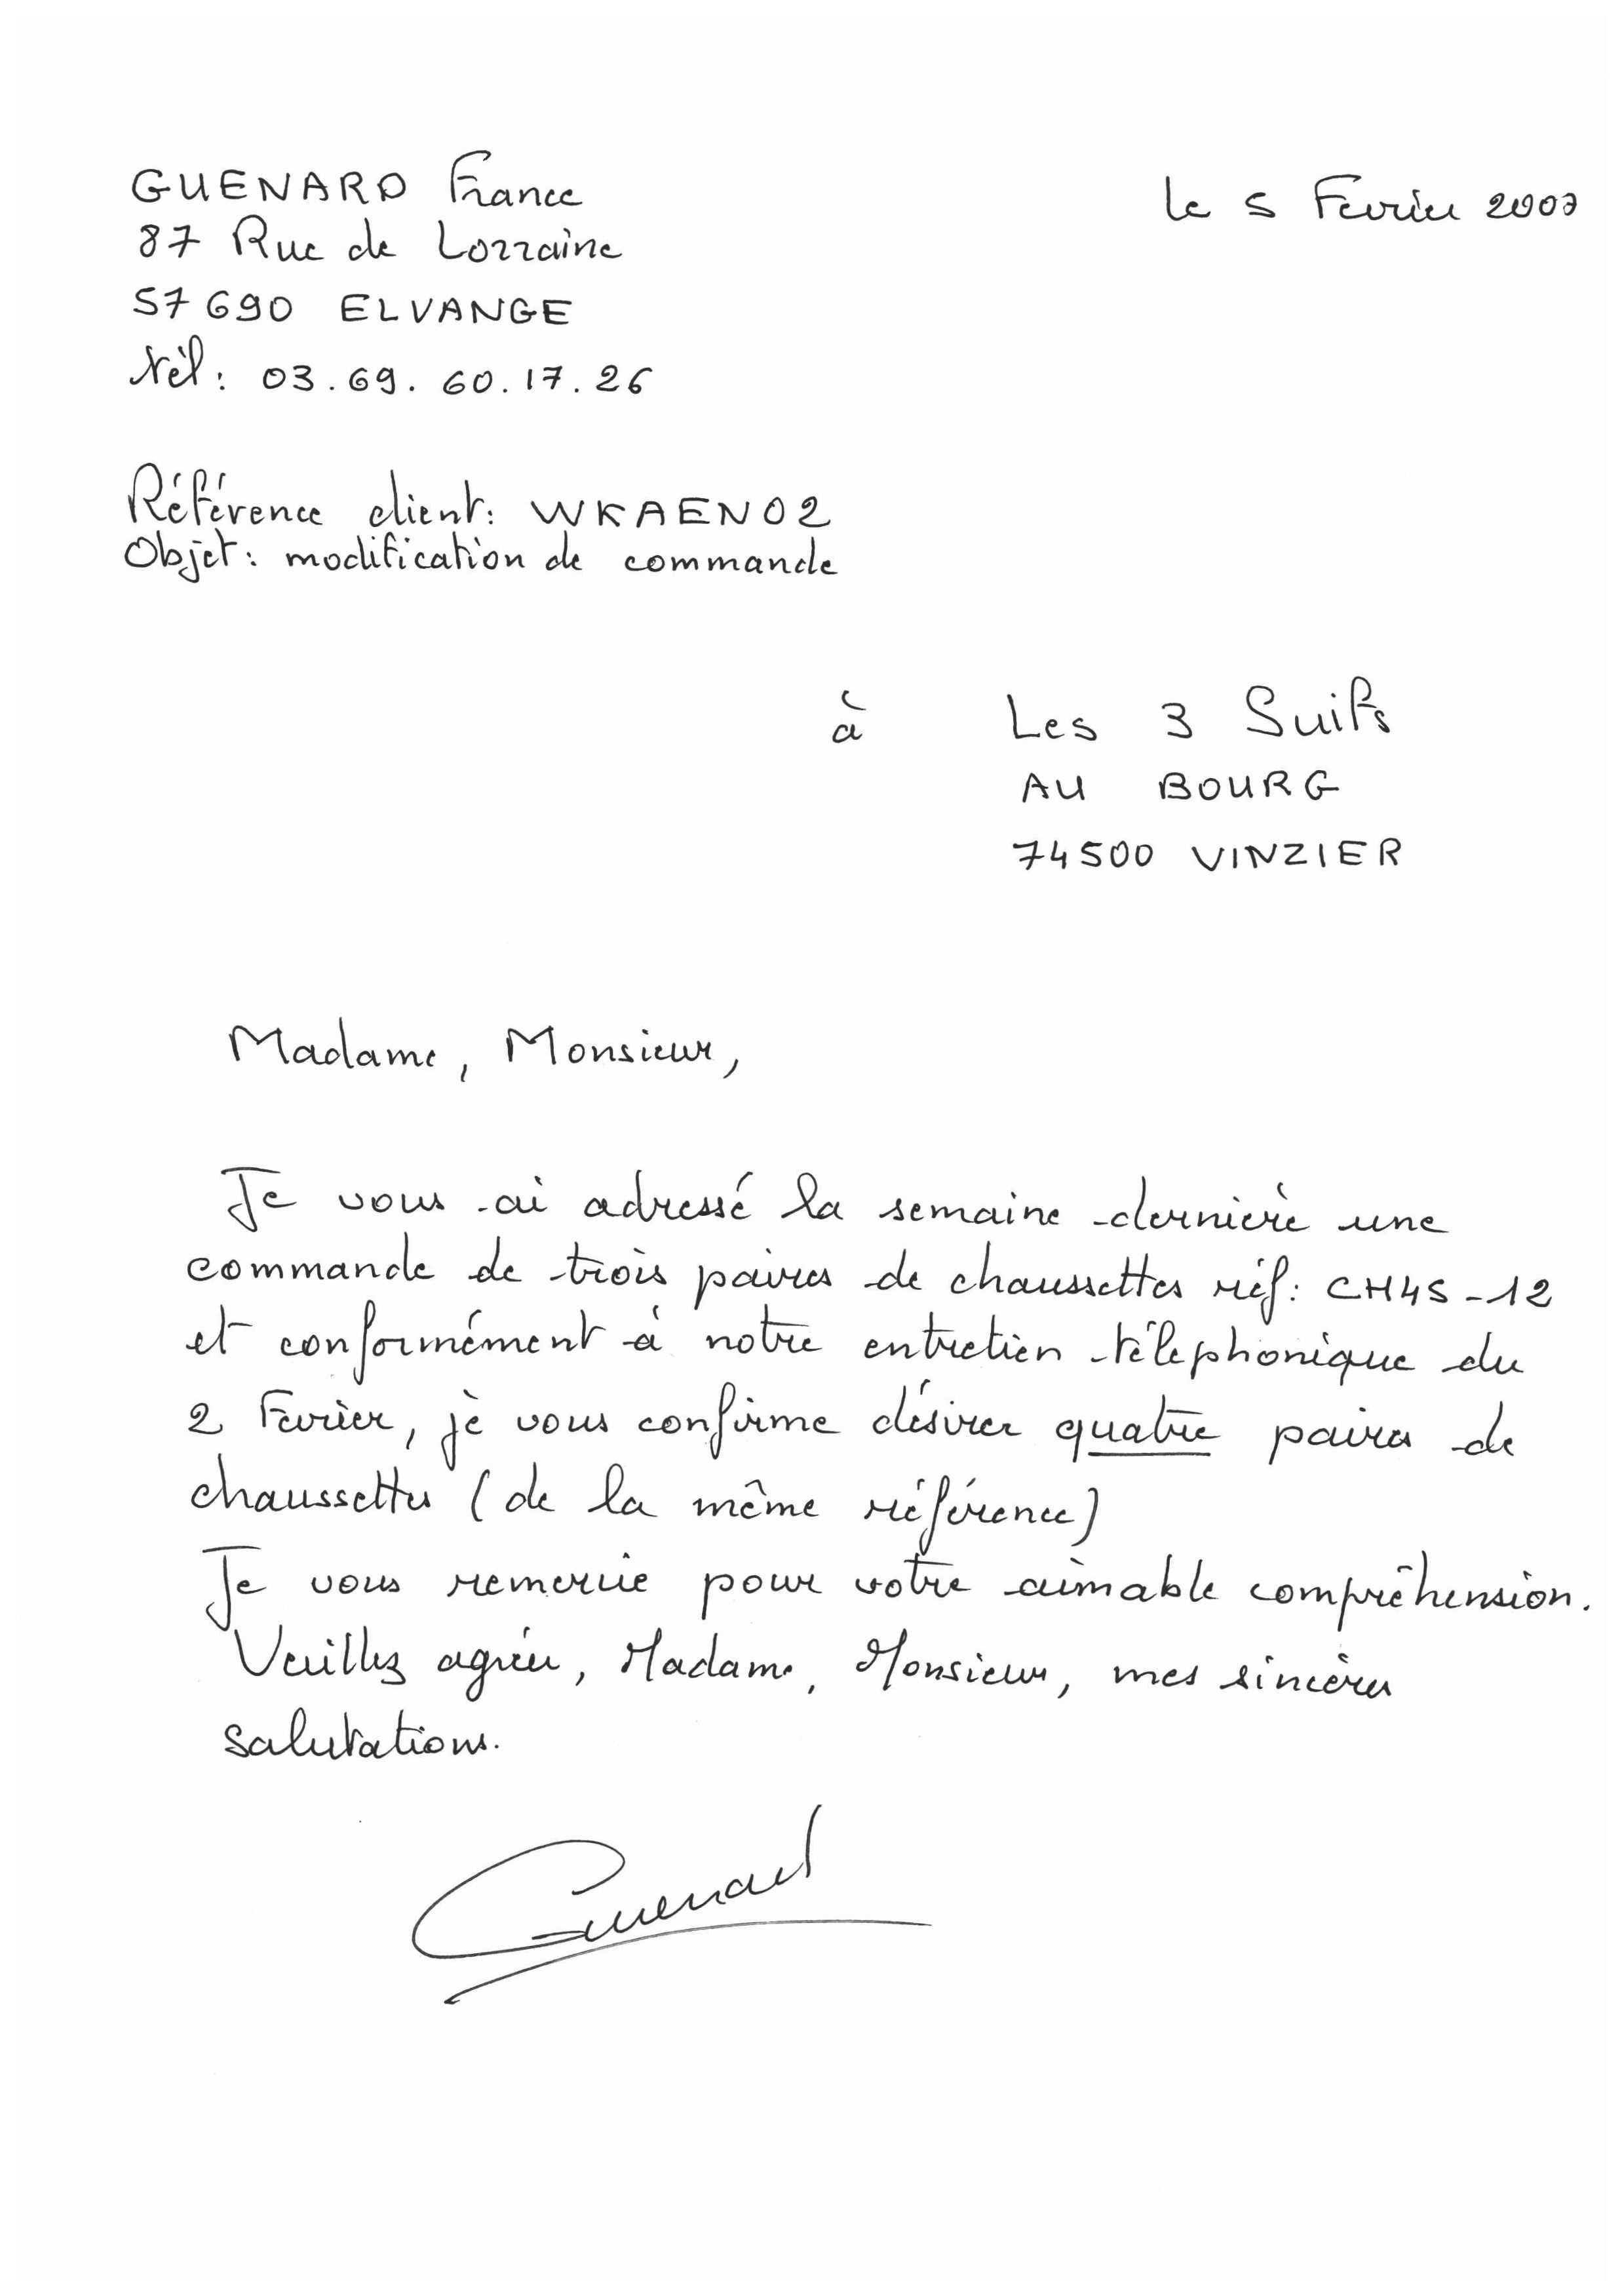 GUENARD France
le 5 Fevrier 2007
87 Rue de Lorraine
57690 ELVANGE
tél: 03.69.60.17.26
Référence client: WKAEN02
Objet: modification de commande
à Les 3 Suifs
AU BOURG
74500 VINZIER
Madame, Monsieur,
Je vous ai adressé la semaine dernière une
commande de trois paires de chaussettes réf: CH4S-12
et conformément à notre entretien téléphonique du
2 Fevrier, je vous confirme désirer quatre paires de
chaussettes (de la même référence)
Je vous remercie pour votre aimable compréhension.
Veuillez agréer, Madame, Monsieur, mes sincères
salutations.
Guenard